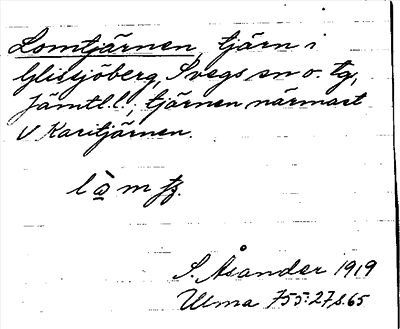 Lomtjärnen, tjärn i
Glissjöberg, Svegs sn o. tg,
Jämtl. l., tjärnen närmast
V Karitjärnen.
S. Åsander 1919
Ulma 755:27 s. 65